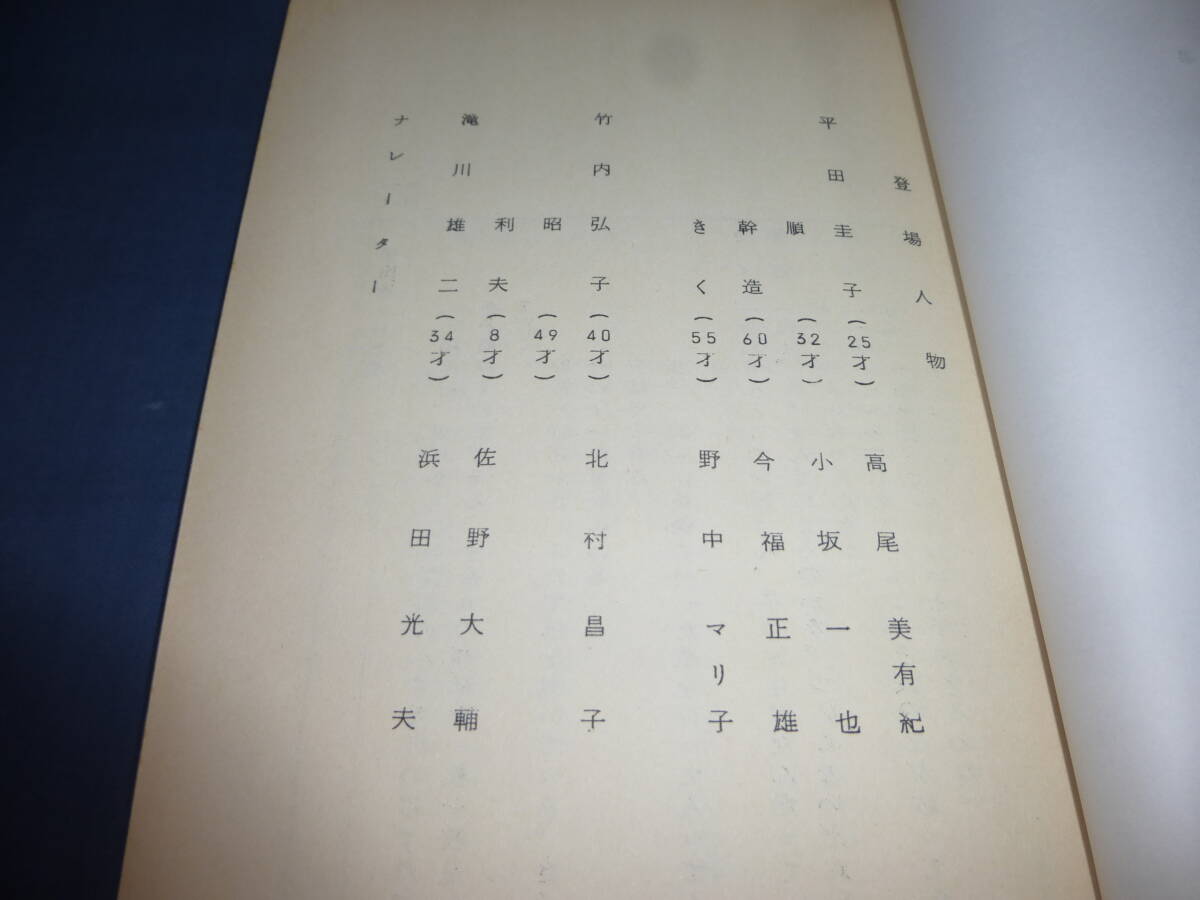 登場人物
平田圭子(25才) 高尾美有紀
順(32才) 小坂一也
幹造(60才) 今福正雄
きく(55才) 野中マリ子
竹内弘子(40才) 北村昌子
昭(49才)
利夫(8才) 佐野大輔
滝川雄二(34才) 浜田光夫
ナレーター